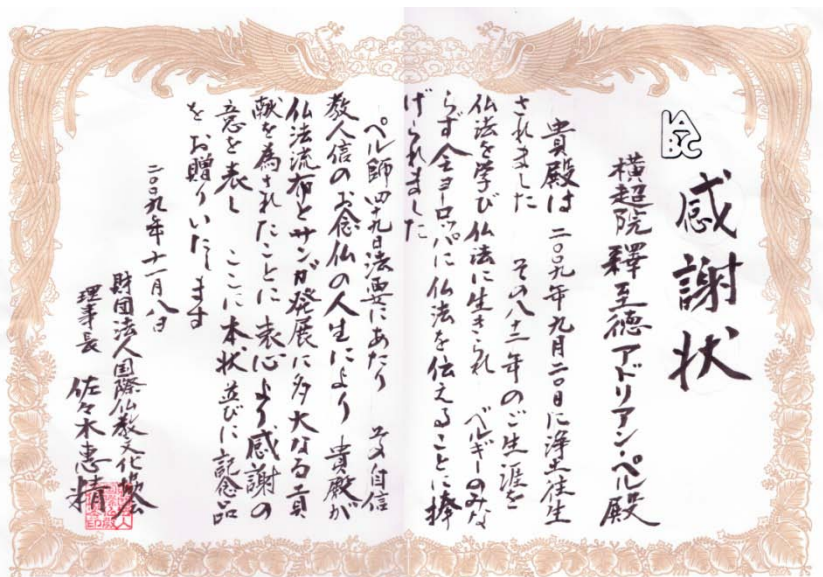 IABC
感謝状
横超院 釋至徳 アドリアン・ペル殿
貴殿は 二〇〇九年九月二〇日に浄土往生
されました その八十二年のご生涯を
仏法を学び仏法に生きられ ベルギーのみな
らず全ヨーロッパに仏法を伝えることに捧
げられました
ペル師四十九日法要にあたり 自信
教人信のお念仏の人生により 貴殿が
仏法流布とサンガ発展に多大なる貢
献を為されたことに 衷心より感謝の
意を表し ここに本状並びに記念品
をお贈りいたします
二〇〇九年十一月八日
財団法人国際仏教文化協会
理事長 佐々木恵精